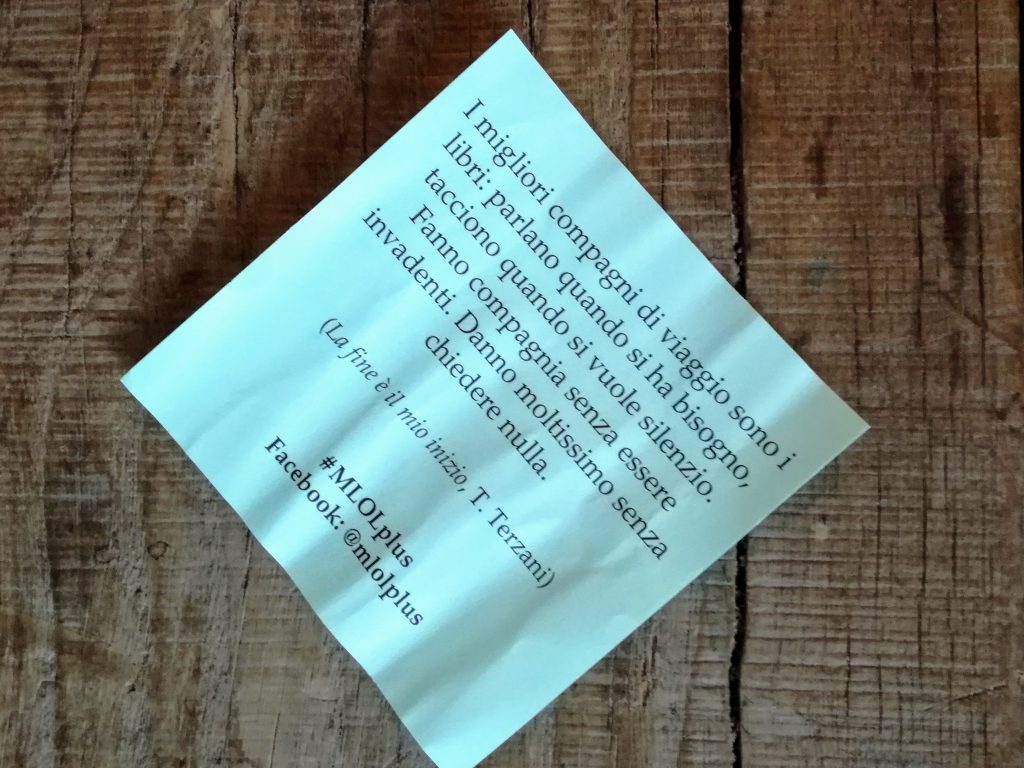 I migliori compagni di viaggio sono i
libri: parlano quando si ha bisogno,
tacciono quando si vuole silenzio.
Fanno compagnia senza essere
invadenti. Danno moltissimo senza
chiedere nulla.
(La fine è il mio inizio, T. Terzani)
#MLOLplus
Facebook: @mlolplus